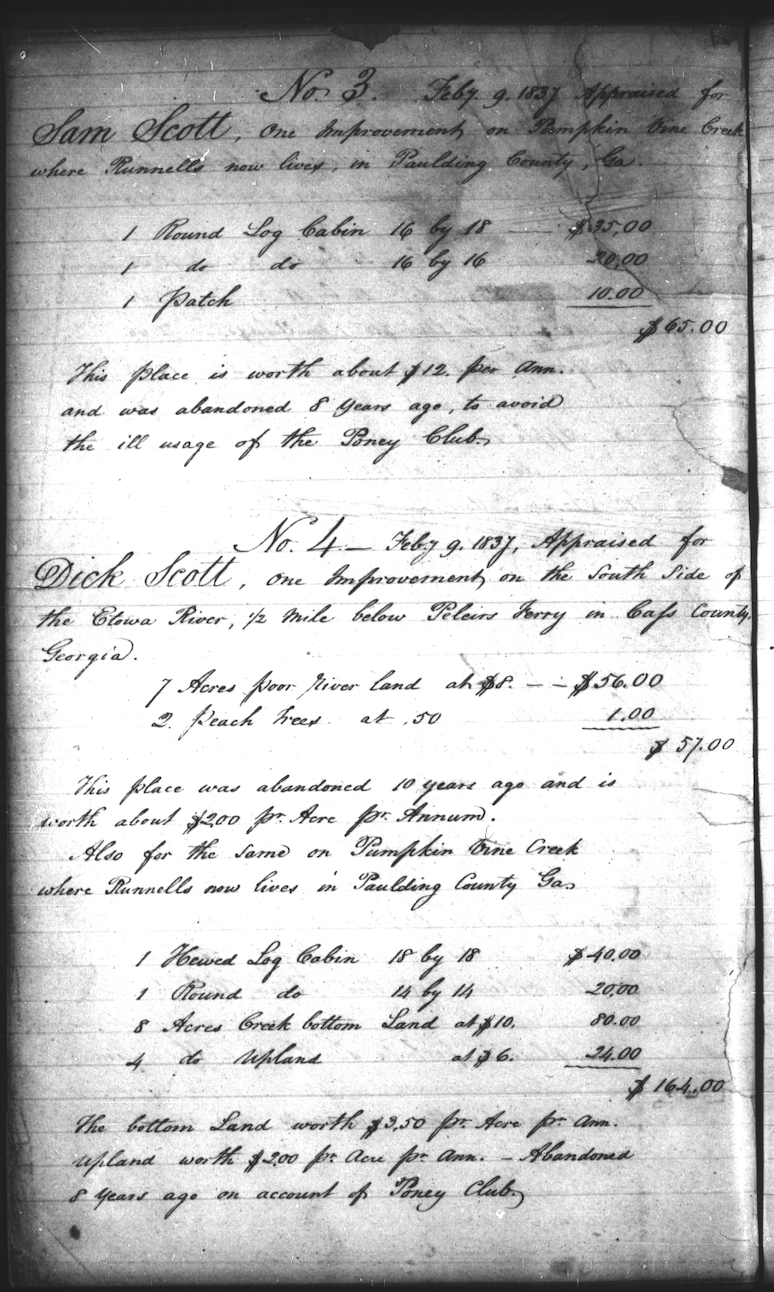 No. 3. Feby 9. 1837 Appraised for
Sam Scott, One Improvement, on Pumpkin Vine Creek
where Runnells now lives, in Paulding County, Ga.
1 Round Log Cabin 16 by 18 — $35,00
1 do do 16 by 16 20,00
1 Patch 10.00
$65.00
This place is worth about $12. per Ann.
and was abandoned 8 years ago, to avoid
the ill usage of the Poney Club.
No. 4 — Feby 9. 1837, Appraised for
Dick Scott, One Improvement, on the South Side of
the Etowa River, 1/2 Mile below Peleirs Ferry in Cass County,
Georgia.
7 Acres poor river land at $8. — — $56.00
2 Peach trees at .50 1.00
$57.00
This place was abandoned 10 years ago and is
worth about $2,00 pr. Acre pr. Annum.
Also for the same on Pumpkin Vine Creek
where Runnells now lives in Paulding County Ga.
1 Hewed Log Cabin 18 by 18 $40,00
1 Round do 14 by 14 20,00
8 Acres Creek bottom Land at $10. 80.00
4 do Upland at $6. 24.00
$164,00
The bottom Land worth $3,50 pr. Acre pr. Ann.
Upland worth $2,00 pr. Acre pr. Ann. — Abandoned
8 years ago on account of Poney Club.